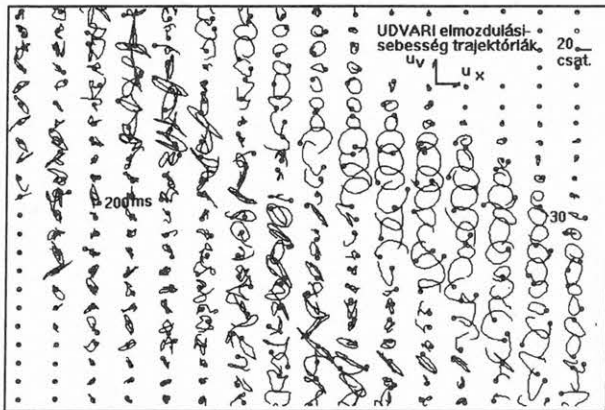 UDVARI elmozdulási-
sebesség trajektóriák
u v
u x
20
csat.
200 ms
30